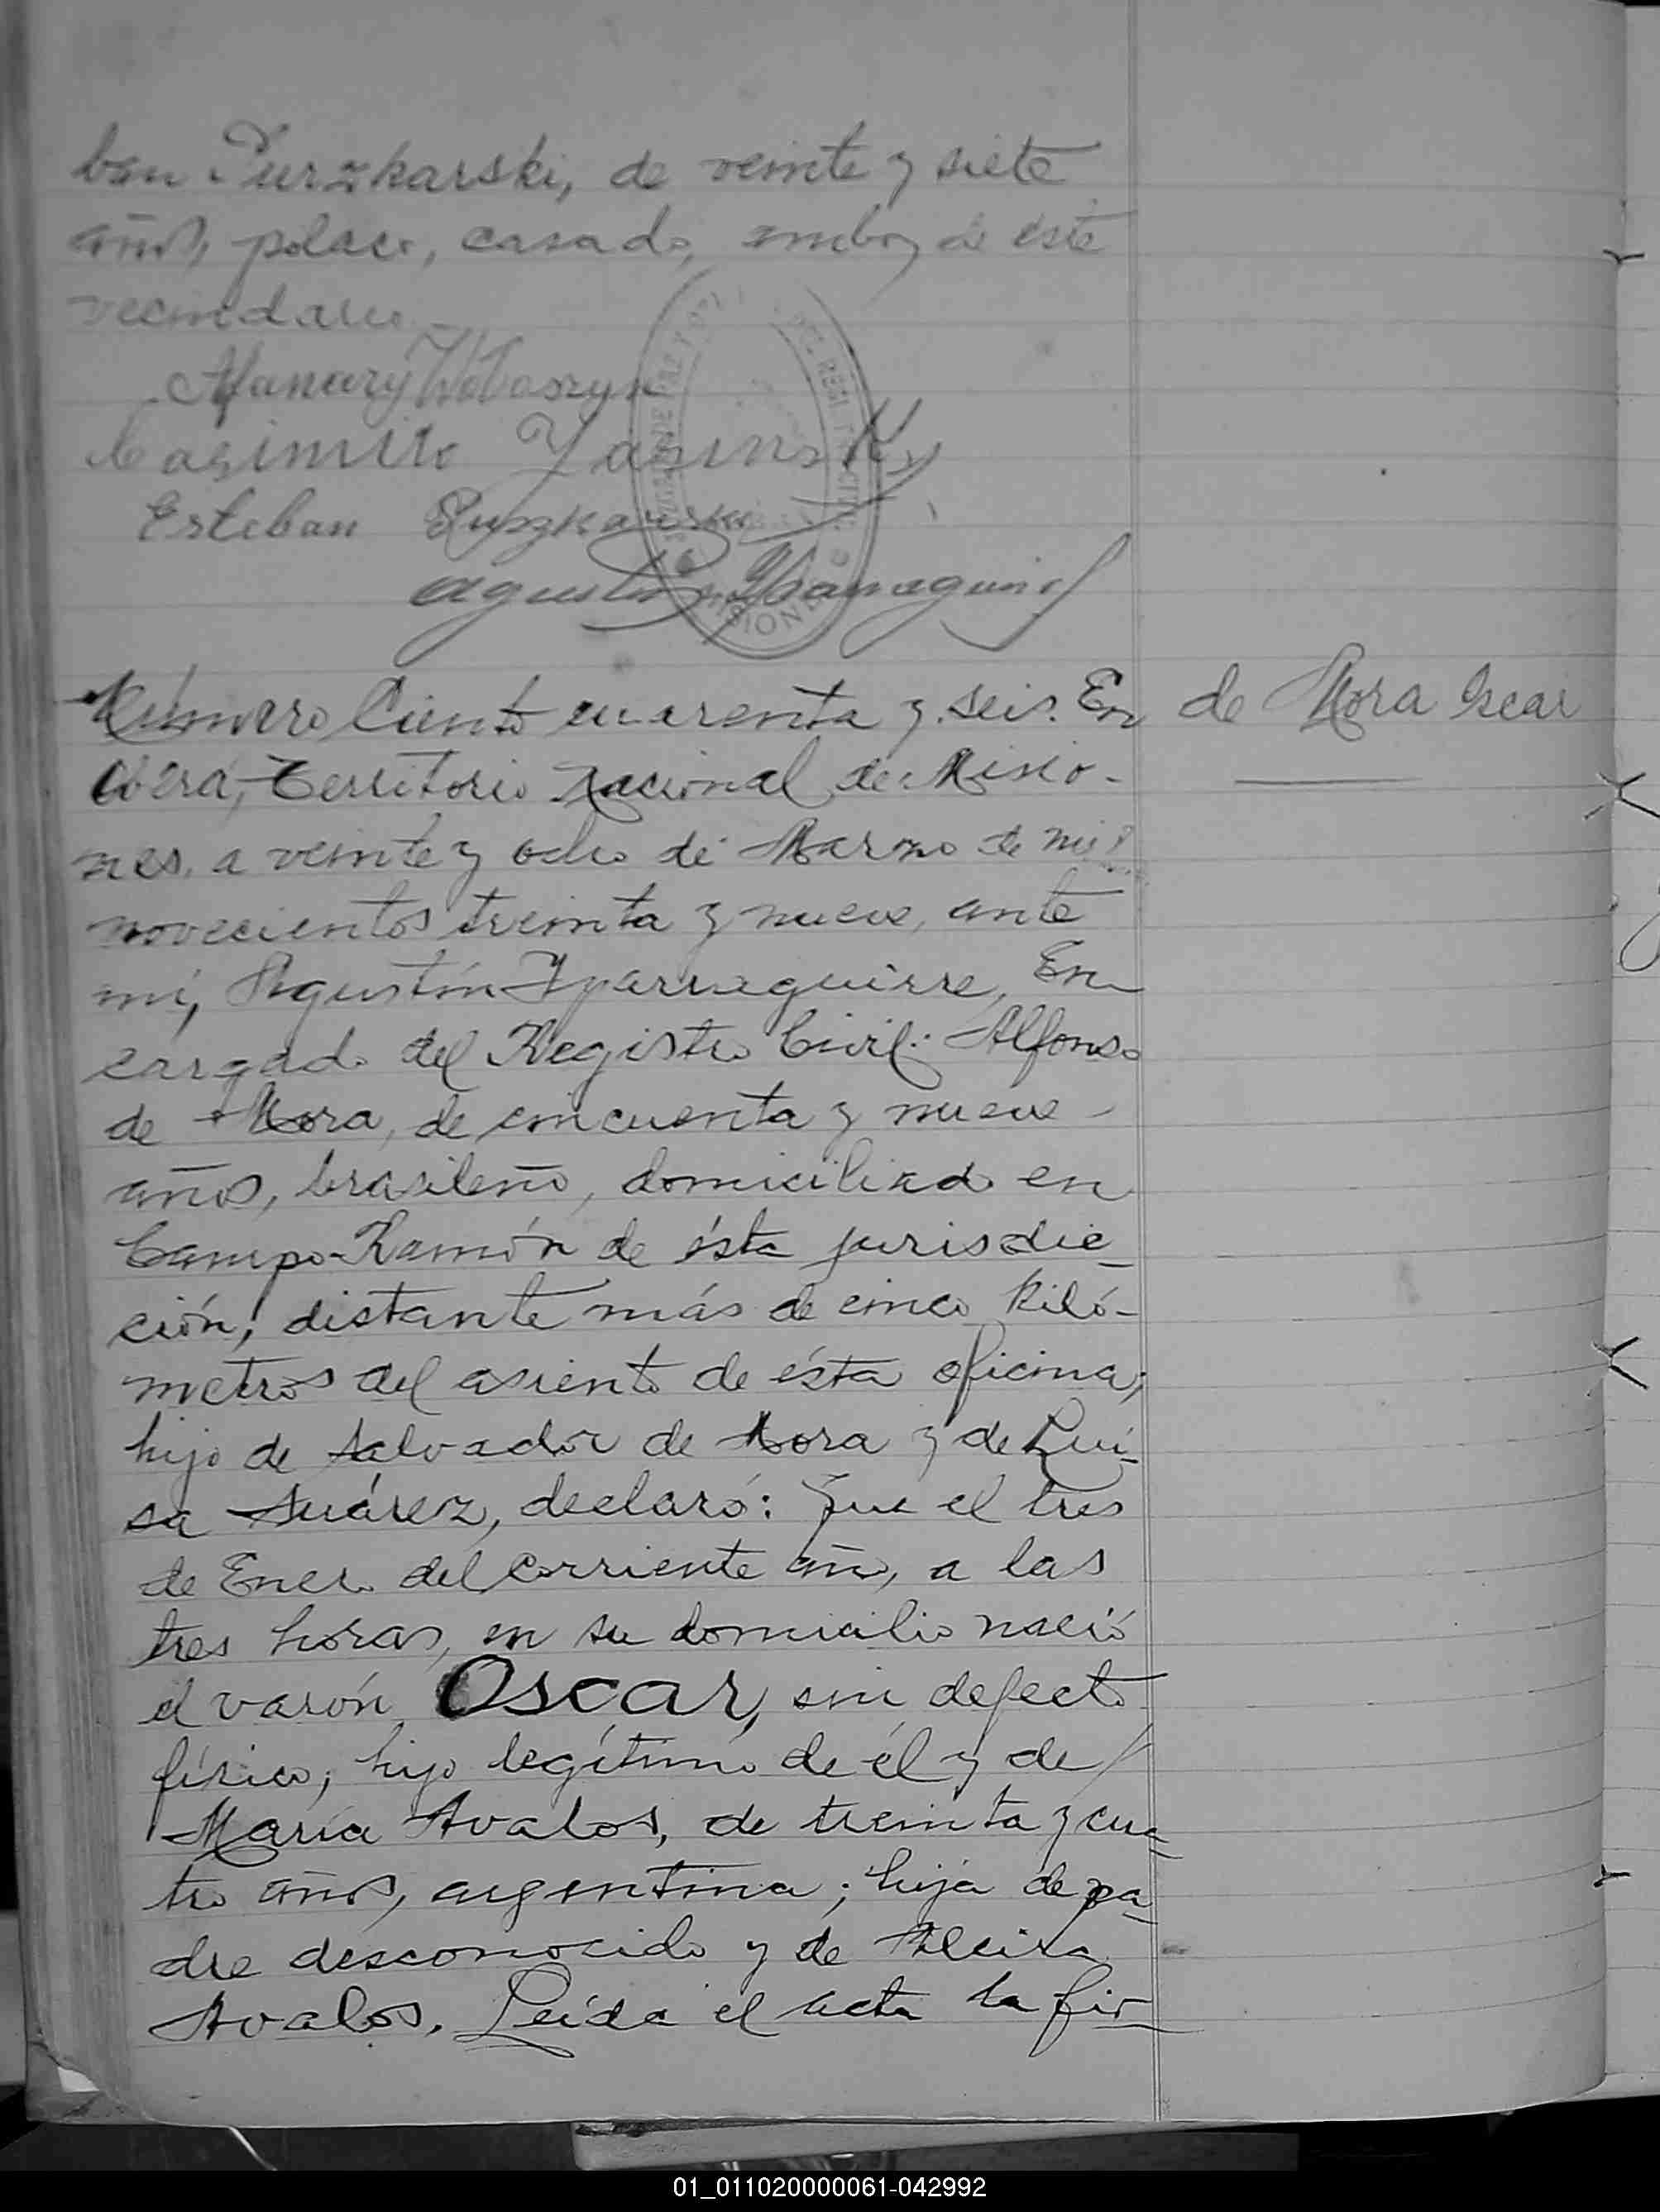 ban Puszkarski, de veinte y siete
años, polaco, casado, ambos de este
vecindario.
Casimiro
Esteban Puszkarski
Agustín Yparraguirre
Número Ciento cuarenta y seis. En
de Mora Oscar
Oberá, Territorio Nacional de Misio-
nes, a veinte y ocho de Marzo de mil
novecientos treinta y nueve, ante
mí, Agustín Yparraguirre, En
cargado del Registro Civil: Alfonso
de Mora, de cincuenta y nueve
años, brasileño, domiciliado en
Campo Ramón de ésta jurisdic-
ción, distante más de cinco kiló-
metros del asiento de ésta oficina;
hijo de Salvador de Mora y de Lui-
sa Suárez, declaró: Que el tres
de Enero del corriente año, a las
tres horas, en su domicilio nació
el varón Oscar, sin defecto
físico; hijo legítimo de él y de
María Avalos, de treinta y cua-
tro años, argentina; hija de pa-
dre desconocido y de
Avalos. Leída el acta la fir-
01_011020000061-042992